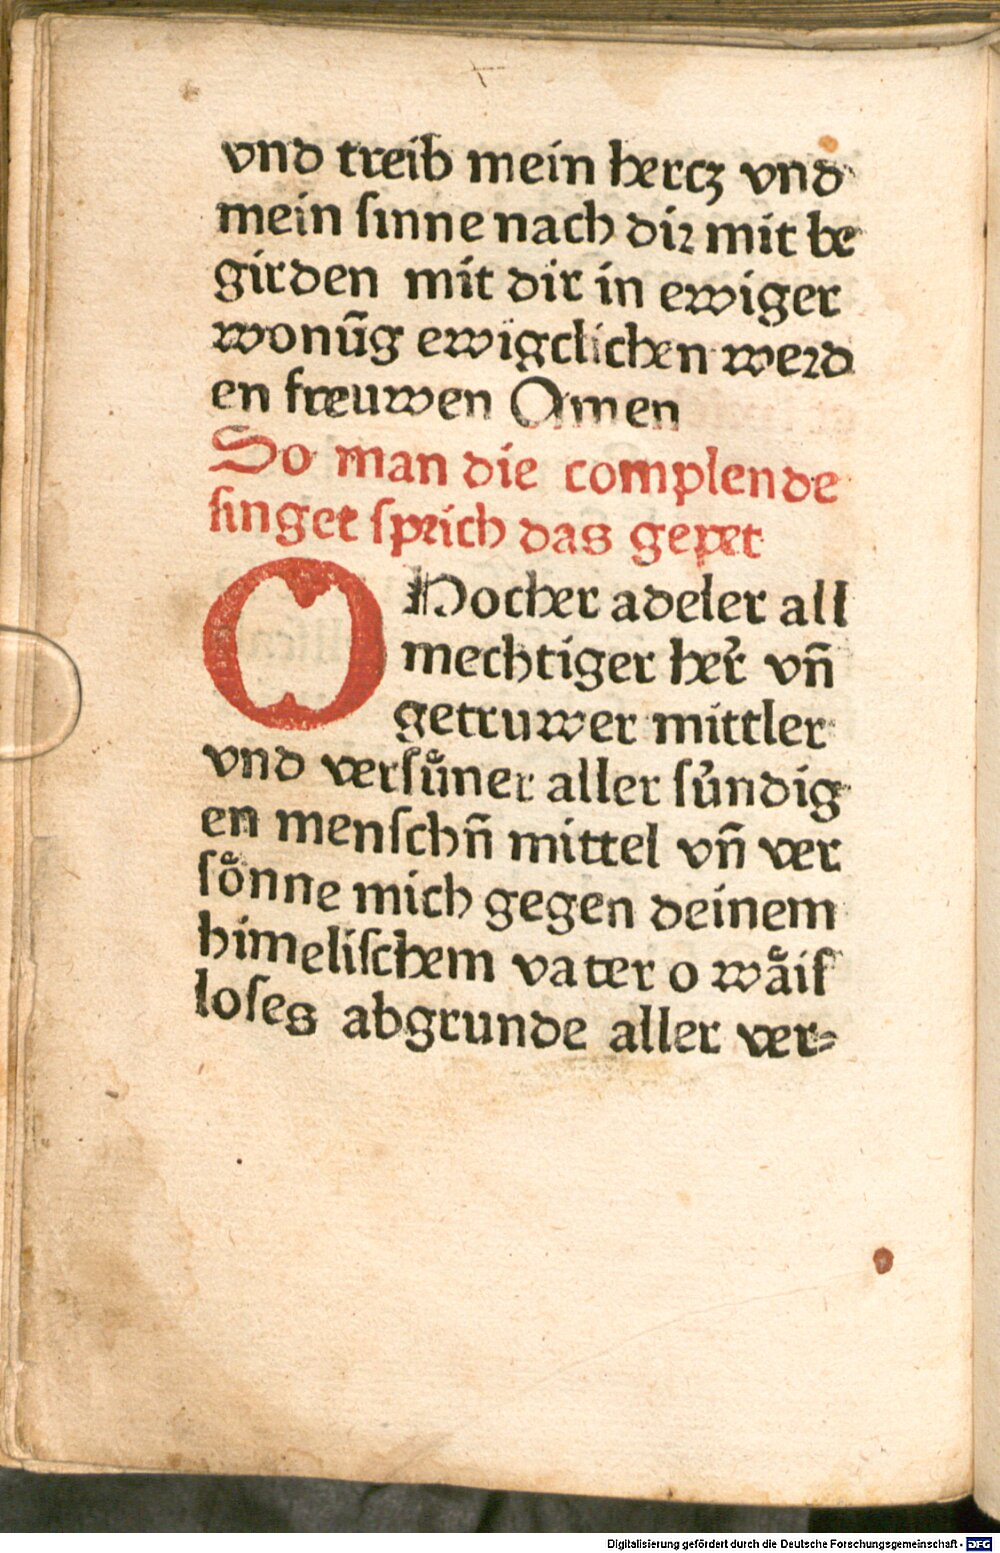 vnd treib mein hercz vnd
mein sinne nach dir mit be
girden mit dir in ewiger
wonūg ewigclichen werd
en freuwen Amen
So man die complende
singet sprich das gepet
O Hocher adeler all
mechtiger her̃ vñ
getruwer mittler
vnd versuͦner aller suͤndig
en menschñ mittel vñ ver
soͤnne mich gegen deinem
himelischem vater o waͤis
loses abgrunde aller ver⸗
Digitalisierung gefördert durch die Deutsche Forschungsgemeinschaft - DFG